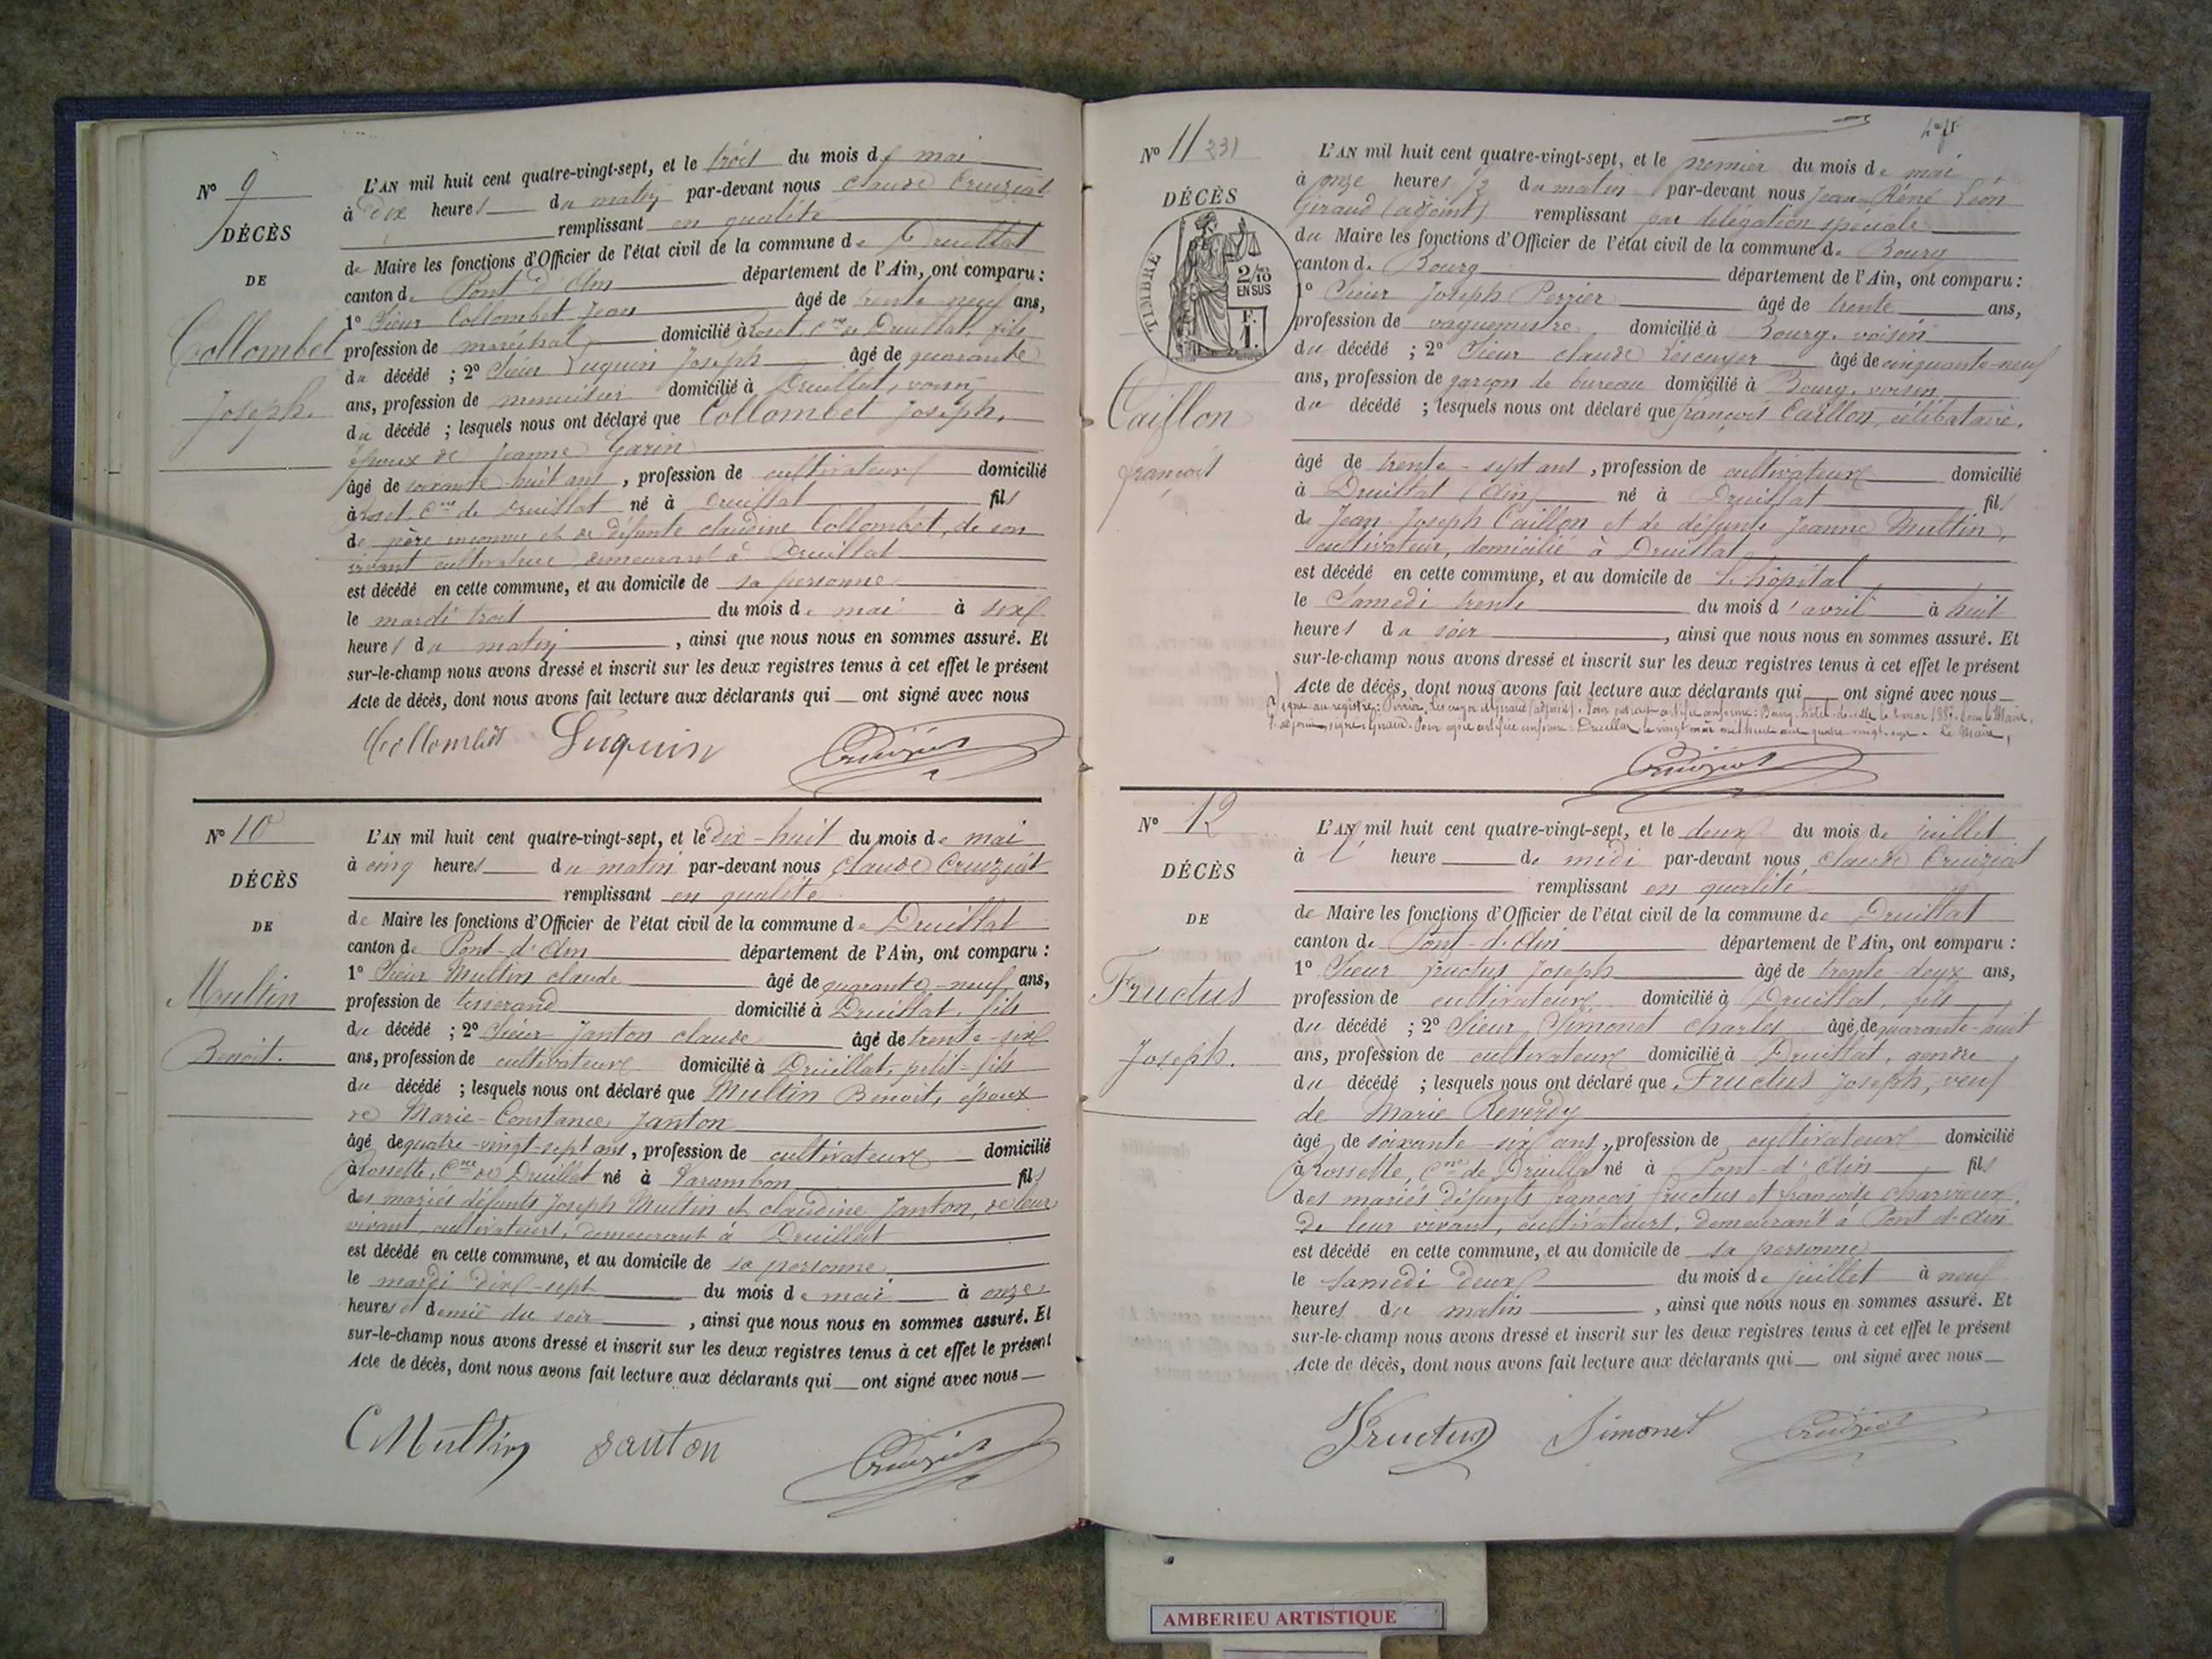 N° 9
DÉCÈS
DE
Collombet
Joseph.
L'AN mil huit cent quatre-vingt-sept, et le trois du mois de mai
à dix heures du matin par-devant nous Claude Cruiziat
remplissant en qualité
de Maire les fonctions d'Officier de l'état civil de la commune de Druillat
canton de Pont d'Ain département de l'Ain, ont comparu :
1° Sieur Collombet Jean âgé de trente neuf ans,
profession de maréchal domicilié à Roset, Cne de Druillat, fils
du décédé ; 2° Sieur Luquin Joseph âgé de quarante
ans, profession de menuisier domicilié à Druillat, voisin
du décédé ; lesquels nous ont déclaré que Collombet Joseph,
époux de Jeanne Garin
âgé de soixante-huit ans, profession de cultivateur domicilié
à Roset, Cne de Druillat né à Druillat fils
de père inconnu et de défunte Claudine Collombet, de son
vivant cultivatrice demeurant à Druillat
est décédé en cette commune, et au domicile de sa personne
le mardi trois du mois de mai à six
heures du matin, ainsi que nous nous en sommes assuré. Et
sur-le-champ nous avons dressé et inscrit sur les deux registres tenus à cet effet le présent
Acte de décès, dont nous avons fait lecture aux déclarants qui ont signé avec nous
Collombet Luquin Cruiziat
N° 10
DÉCÈS
DE
Multin
Benoit.
L'AN mil huit cent quatre-vingt-sept, et le dix-huit du mois de mai
à cinq heures du matin par-devant nous Claude Cruiziat
remplissant en qualité
de Maire les fonctions d'Officier de l'état civil de la commune de Druillat
canton de Pont-d'Ain département de l'Ain, ont comparu :
1° Sieur Multin Claude âgé de quarante-neuf ans,
profession de tisserand domicilié à Druillat, fils
du décédé ; 2° Sieur Janton Claude âgé de trente-six
ans, profession de cultivateur domicilié à Druillat, petit-fils
du décédé ; lesquels nous ont déclaré que Multin Benoit, époux
de Marie-Constance Janton
âgé de quatre-vingt-sept ans, profession de cultivateur domicilié
à Rossette, Cne de Druillat né à Varambon fils
des mariés défunts Joseph Multin et Claudine Janton, de leur
vivant, cultivateurs, demeurant à Druillat
est décédé en cette commune, et au domicile de sa personne
le mardi dix-sept du mois de mai à onze
heures et demie du soir, ainsi que nous nous en sommes assuré. Et
sur-le-champ nous avons dressé et inscrit sur les deux registres tenus à cet effet le présent
Acte de décès, dont nous avons fait lecture aux déclarants qui ont signé avec nous
C Multin Janton Cruiziat
N° 11 231
DÉCÈS
TIMBRE
2/10 EN SUS
F. 1.
Caillon
françois
L'AN mil huit cent quatre-vingt-sept, et le premier du mois de mai
à onze heures ½ du matin par-devant nous Jean Réné Léon
Giraud (adjoint) remplissant par délégation spéciale
du Maire les fonctions d'Officier de l'état civil de la commune de Bourg
canton de Bourg département de l'Ain, ont comparu :
1° Sieur Joseph Perrier âgé de trente ans,
profession de vaguemestre domicilié à Bourg, voisin
du décédé ; 2° Sieur Claude Lescuyer âgé de cinquante-neuf
ans, profession de garçon de bureau domicilié à Bourg, voisin
du décédé ; lesquels nous ont déclaré que françois Caillon, célibataire,
âgé de trente-sept ans, profession de cultivateur domicilié
à Druillat (Ain) né à Druillat fils
de Jean-Joseph Caillon et de défunte Jeanne Multin,
cultivateur, domicilié à Druillat
est décédé en cette commune, et au domicile de L'hôpital
le Samedi trente du mois d'avril à huit
heures du soir, ainsi que nous nous en sommes assuré. Et
sur-le-champ nous avons dressé et inscrit sur les deux registres tenus à cet effet le présent
Acte de décès, dont nous avons fait lecture aux déclarants qui ont signé avec nous
signé au registre: Perrier, Lescuyer et Giraud (adjoint). Pour certifié conforme: Bourg, hôtel-de-ville le 2 mai 1887. Pour le Maire,
L'adjoint, signé: Giraud. Pour copie certifiée conforme: Druillat, le vingt mai mil huit cent quatre-vingt-sept. Le Maire,
Cruiziat
N° 12
DÉCÈS
DE
Fructus
Joseph.
L'AN mil huit cent quatre-vingt-sept, et le deux du mois de juillet
à l' heure de midi par-devant nous Claude Cruiziat
remplissant en qualité
de Maire les fonctions d'Officier de l'état civil de la commune de Druillat
canton de Pont-d'Ain département de l'Ain, ont comparu :
1° Sieur Fructus Joseph âgé de trente-deux ans,
profession de cultivateur domicilié à Druillat, fils
du décédé ; 2° Sieur Simonet Charles âgé de quarante-huit
ans, profession de cultivateur domicilié à Druillat, gendre
du décédé ; lesquels nous ont déclaré que Fructus Joseph, veuf
de Marie Reverdy
âgé de soixante-six ans, profession de cultivateur domicilié
à Rossette, Cne de Druillat né à Pont-d'Ain fils
des mariés défunts françois Fructus et françoise Charvieux,
de leur vivant, cultivateurs, demeurant à Pont-d'Ain
est décédé en cette commune, et au domicile de sa personne
le Samedi deux du mois de juillet à neuf
heures du matin, ainsi que nous nous en sommes assuré. Et
sur-le-champ nous avons dressé et inscrit sur les deux registres tenus à cet effet le présent
Acte de décès, dont nous avons fait lecture aux déclarants qui ont signé avec nous
Fructus Simonet Cruiziat
AMBERIEU ARTISTIQUE